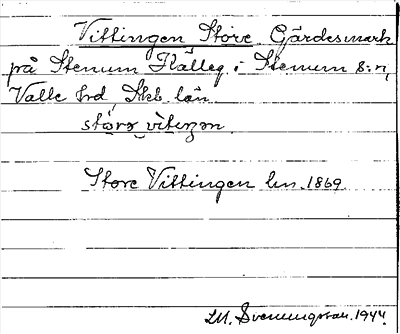 Vittingen Store Gärdesmark
på Stenum Hälleg i Stenum s:n,
Valle hrd, Skb. län
störə vìteŋən.
Store Vittingen lm. 1869
M. Svenungsson. 1944.